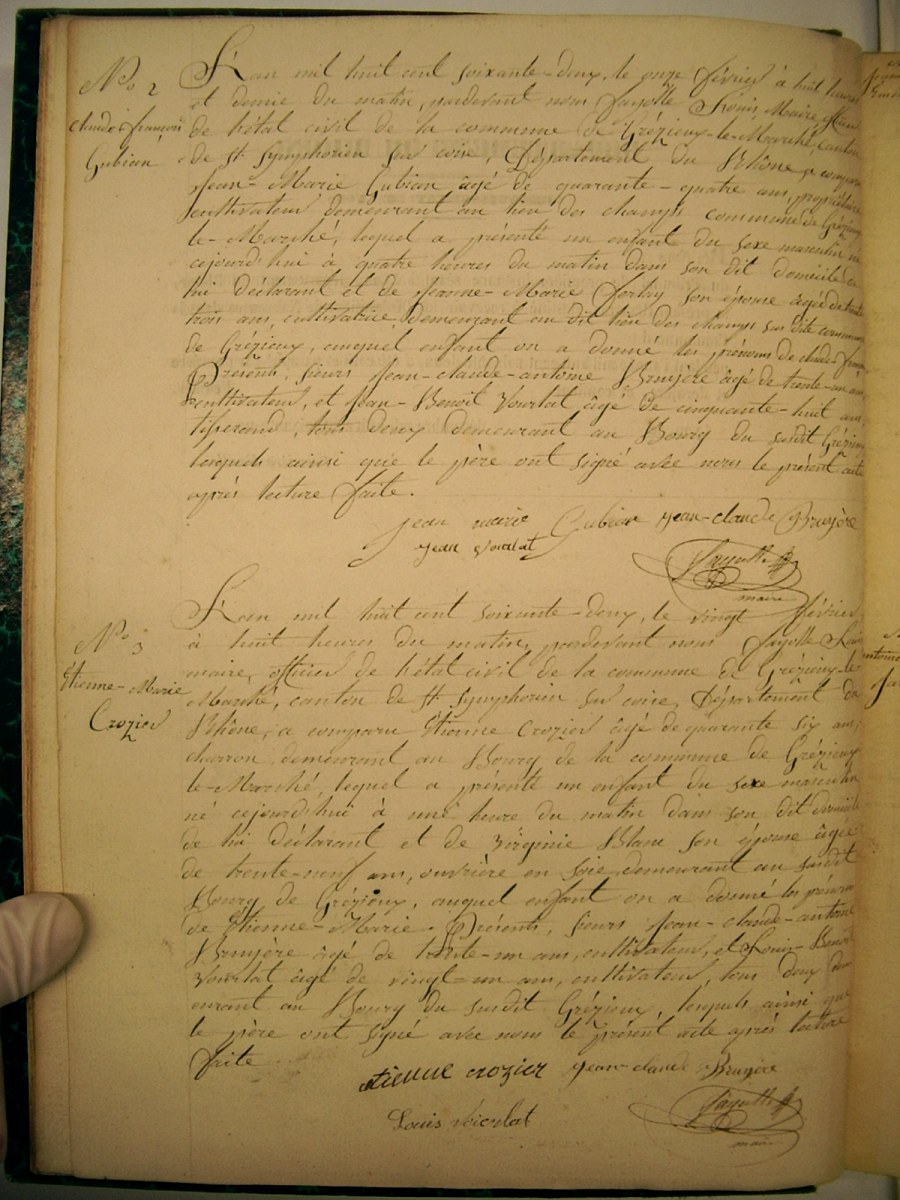 N° 2
Claude-françois
Gubian
L'an mil huit cent soixante-deux, le onze février à huit heures
et demie du matin, pardevant nous Fayolle Louis, Maire, officier
de l'état civil de la commune de Grézieux-le-Marché, Canton
de St. Symphorien sur coise, Département du Rhône, a comparu
Jean-Marie Gubian âgé de quarante-quatre ans, propriétaire
cultivateur demeurant au lieu des champs commune de Grézieux
le-Marché, lequel a présenté un enfant du sexe masculin né
cejourd'hui à quatre heures du matin dans son dit domicile de
lui déclarant et de Jeanne-Marie son épouse âgée de trente
trois ans, cultivatrice, demeurant au dit lieu des champs sus dite commune
de Grézieux, auquel enfant on a donné les prénoms de claude-françois
Présents, sieurs Jean-claude-antoine Bruyère âgé de trente-un ans
cultivateur, et Jean-Benoît Vourlat, âgé de cinquante-huit ans,
tisserand, tous deux demeurant au Bourg du susdit Grézieux
lesquels ainsi que le père ont signé avec nous le présent acte
après lecture faite.
jean marie Gubian jean-claude Bruyère
jean vourlat
Fayolle
maire
N° 3
Etienne-Marie
Crozier
L'an mil huit cent soixante-deux, le vingt février
à huit heures du matin, pardevant nous Fayolle Louis
maire, officier de l'état civil de la commune de Grézieux-le
Marché, canton de St Symphorien sur coise, Département du
Rhône, a comparu Etienne Crozier âgé de quarante six ans,
charron demeurant au Bourg de la commune de Grézieux
le-Marché, lequel a présenté un enfant du sexe masculin
né cejourd'hui à une heure du matin dans son dit domicile
de lui déclarant et de Virginie Blanc son épouse âgée
de trente-neuf ans, ouvrière en soie, demeurant au susdit
Bourg de Grézieux, auquel enfant on a donné les prénoms
de Etienne-Marie. Présents, sieurs Jean-claude-antoine
Bruyère âgé de trente-un ans, cultivateur, et Louis-Benoît
Vourlat âgé de vingt-un ans, cultivateur, tous deux dem
eurant au Bourg du susdit Grézieux, lesquels ainsi que
le père ont signé avec nous le présent acte après lecture
faite
etienne crozier jean-claude Bruyère
Louis Vourlat
Fayolle
maire